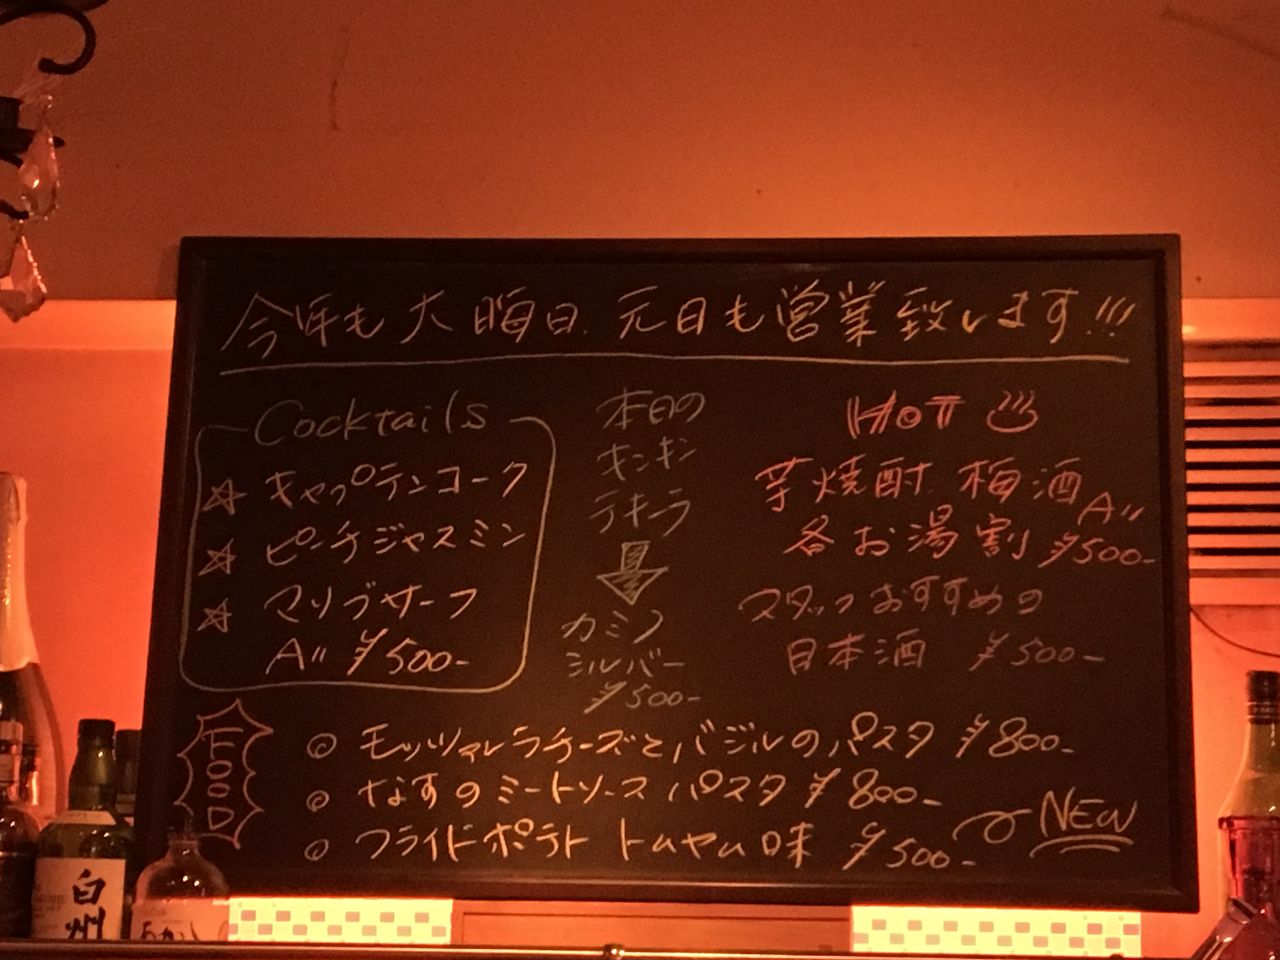 今年も大晦日、元日も営業致します!!!
Cocktails
☆ キャプテンコーク
☆ ピーチジャスミン
☆ マリブサーフ
All ¥500-
本日の
キンキン
テキーラ
カミノ
シルバー
¥500-
HOT
芋焼酎、梅酒
各お湯割 All ¥500-
スタッフおすすめの
日本酒 ¥500-
FOOD
◎ モッツァレラチーズとバジルのパスタ ¥800-
◎ なすのミートソースパスタ ¥800-
◎ フライドポテト トムヤム味 ¥500- NEW
白州